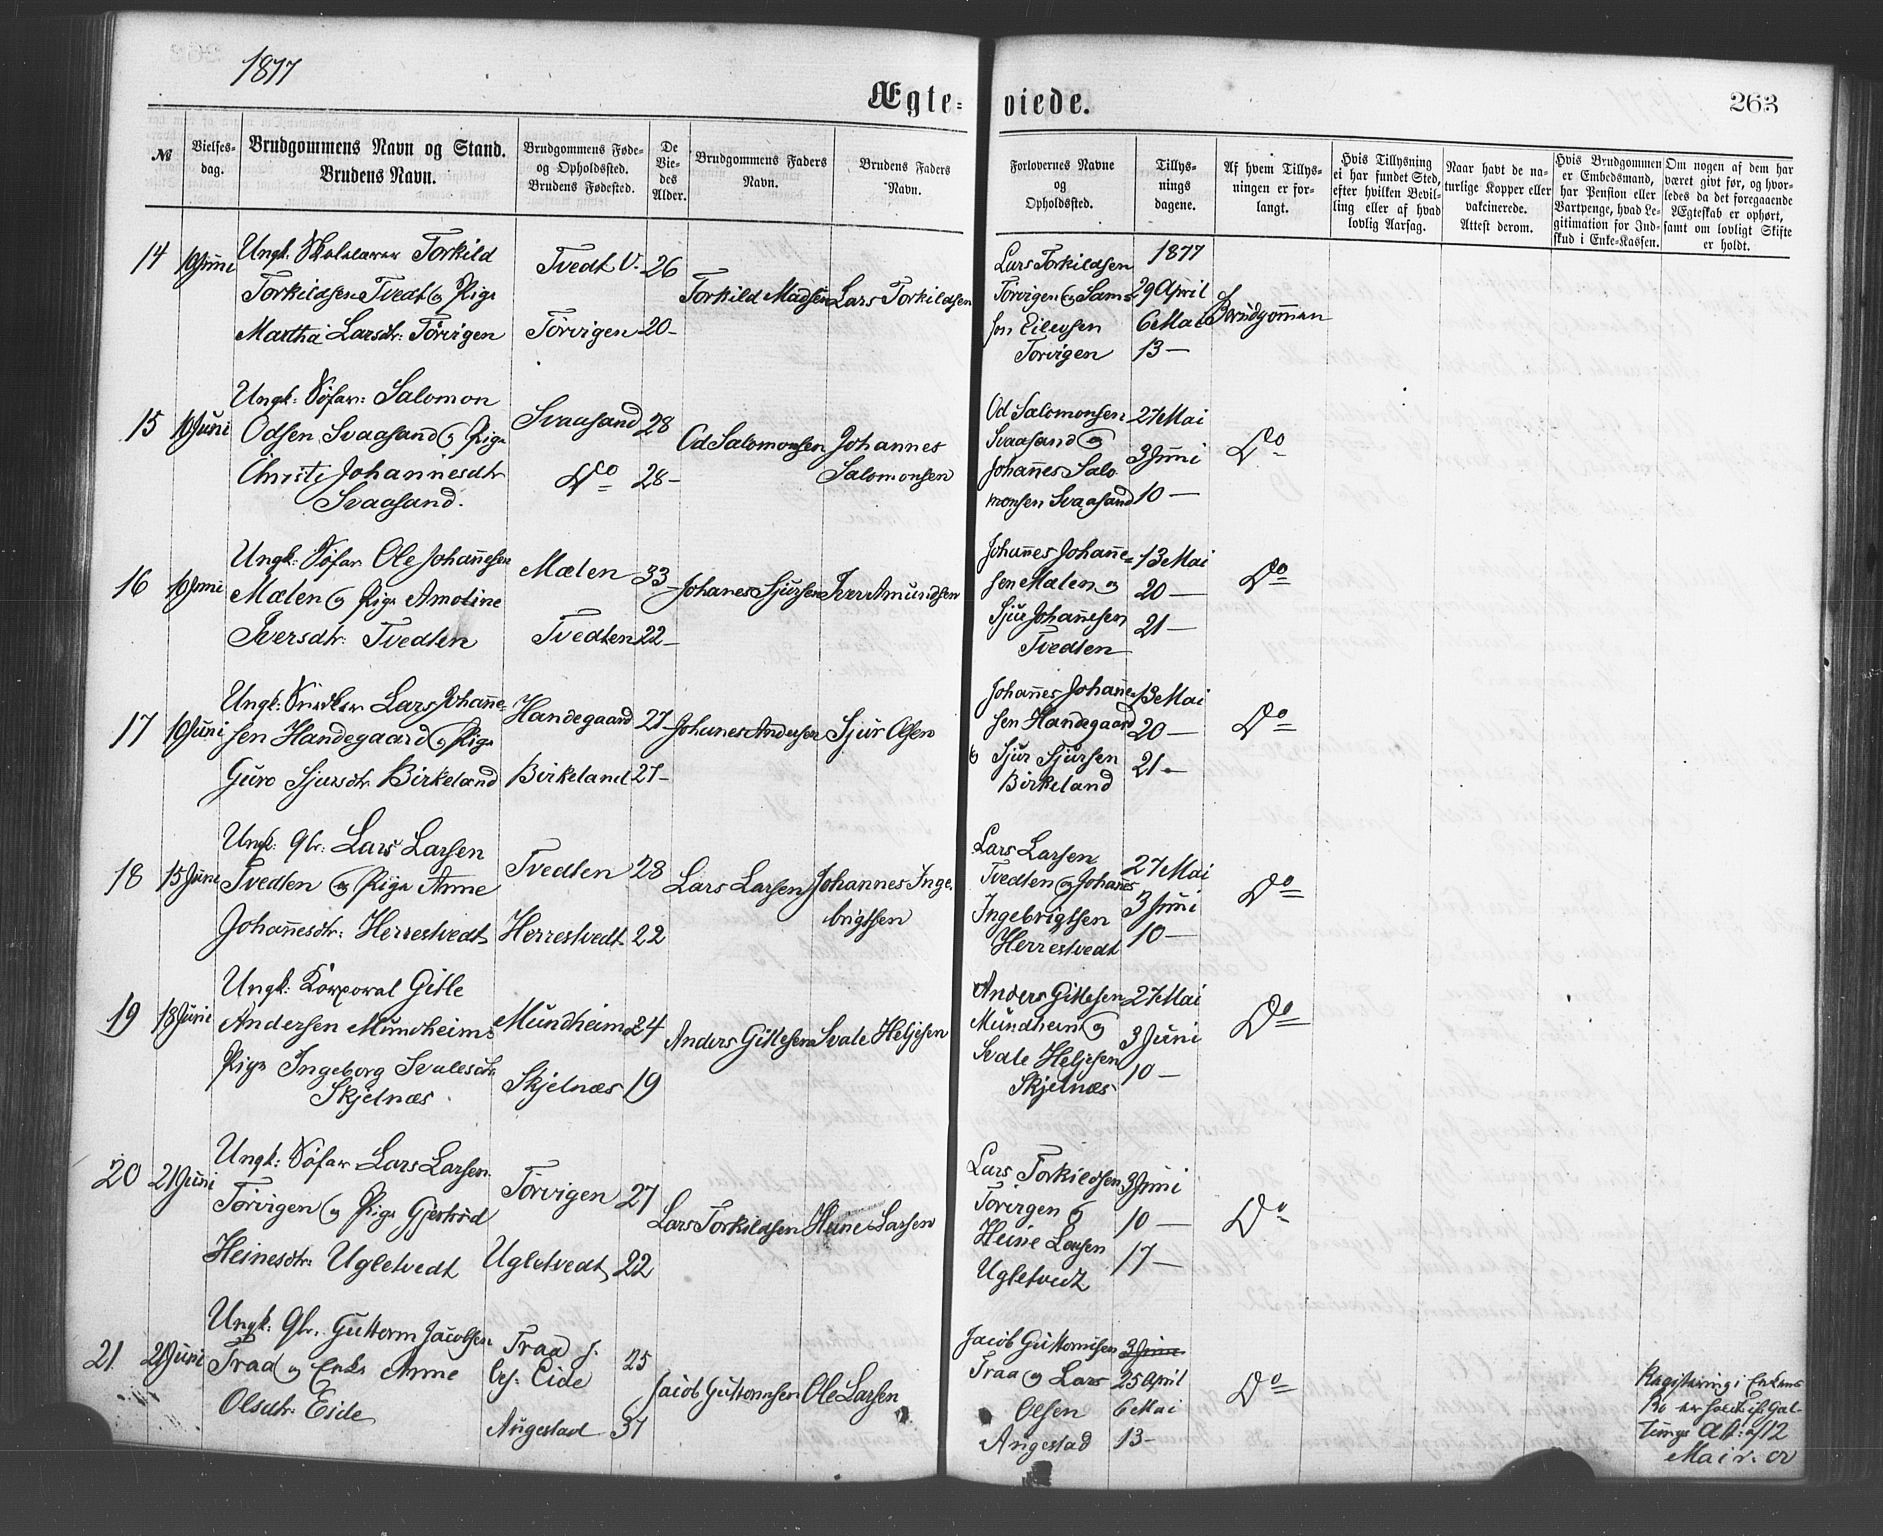 1877
Ægte-
viede.
263
№
Vielses-
dag.
Brudgommens Navn og Stand.
Brudens Navn.
Brudgommens Føde-
og Opholdssted.
Brudens Fødested.
De
Vie-
des
Alder.
Brudgommens Faders
Navn.
Brudens Faders
Navn.
Forlovernes Navne
og
Opholdssted.
Tillys-
nings
dagene.
Af hvem Tillys-
ningen er for-
langt.
Hvis Tillysning
ei har fundet Sted,
efter hvilken Bevil-
ling eller af hvad
lovlig Aarsag.
Naar havt de na-
turlige Kopper eller
vakcinerede.
Attest derom.
Hvis Brudgommen
er Embedsmand,
har Pension eller
Vartpenge, hvad Le-
gitimation for Ind-
skud i Enke-Kassen.
Om nogen af dem har
været givt før, og hvor-
ledes da det foregaaende
Ægteskab er ophørt,
samt om lovligt Skifte
er holdt.
14
10 Juni
Ungk. Skolelærer Torkild
Torkildsen Tvedt og Pige
Martha Larsdtr: Tørvigen
Tvedt V.
Tørvigen
26
20
Torkild Madsen
Lars Torkildsen
Lars Torkildsen
Törvigen og Sam-
son Eilevsen
Torvigen
1877
29 April
6 Mai
13 —
Brudgommen
15
10 Juni
Ungk: Søfar: Salomon
Odsen Svaasand og Pige
Christi Johannesdtr
Svaasand.
Svaasand
Do
28
28
Od Salomonsen
Johannes
Salomonsen
Od Salomonsen
Svaasand og
Johannes Salo
monsen Svaasand
27 Mai
3 Juni
10 —
Do
16
10 Juni
Ungk: Søfar Ole Johannesen
Mælen og Pige Amotine
Iversdtr: Tvedten
Mælen
Tvedten
33
22
Johanes Sjursen
Iver Amundsen
Johannes Johanne-
sen Mælen og
Sjur Johannesen
Tvedten
13 Mai
20 —
21 —
Do
17
10 Juni
Ungk: Snedker Lars Johanne-
sen Handegaard og Pige
Guro Sjursdtr Birkeland
Handegaard
Birkeland
27
27
Johanes Andersen
Sjur Olsen
Johannes Johanne
sen Handegaard
og Sjur Sjursen
Birkeland
13 Mai
20 —
21 —
Do
18
15 Juni
Ungk. Gbr: Lars Larsen
Tvedten og Pige Anne
Johannesdtr: Herrestvedt
Tvedten
Herrestvedt
28
22
Lars Larsen
Johannes Inge-
brigtsen
Lars Larsen
Tvedten og Johannes
Ingebrigtsen
Herrestvedt
27 Mai
3 Juni
10 —
Do
19
18 Juni
Ungk: Korporal Gitle
Andersen Mundheim &
Pige Ingeborg Svalesdtr
Skjelnæs
Mundheim
Skjelnæs
24
19
Anders Gitlesen
Svale Heljesen
Anders Gitlesen
Mundheim og
Svale Heljesen
Skjelnæs
27 Mai
3 Juni
10 —
Do
20
21 Juni
Ungk: Søfar Lars Larsen
Tørvigen og Pige Gjertrud
Heinesdtr: Ugletvedt
Tørvigen
Ugletvedt
27
22
Lars Torkildsen
Heine Larsen
Lars Torkildsen
Törvigen &
Heine Larsen
Ugletvedt
3 Juni
10 —
17 —
Do
21.
21 Juni
Ungk. Gbr. Guttorm Jacobsen
Traa og Enke Anne
Olsdtr Eide
Traa f.
bes. Eide
Augestad
25
37
Jacob Guttormsen
Ole Larsen
Jacob Guttormsen
Traa og Lars
Olsen
Augestad
3 Juni
25 April
6 Mai
13 —
Do
Registering i Enkens
Bo er
Mai